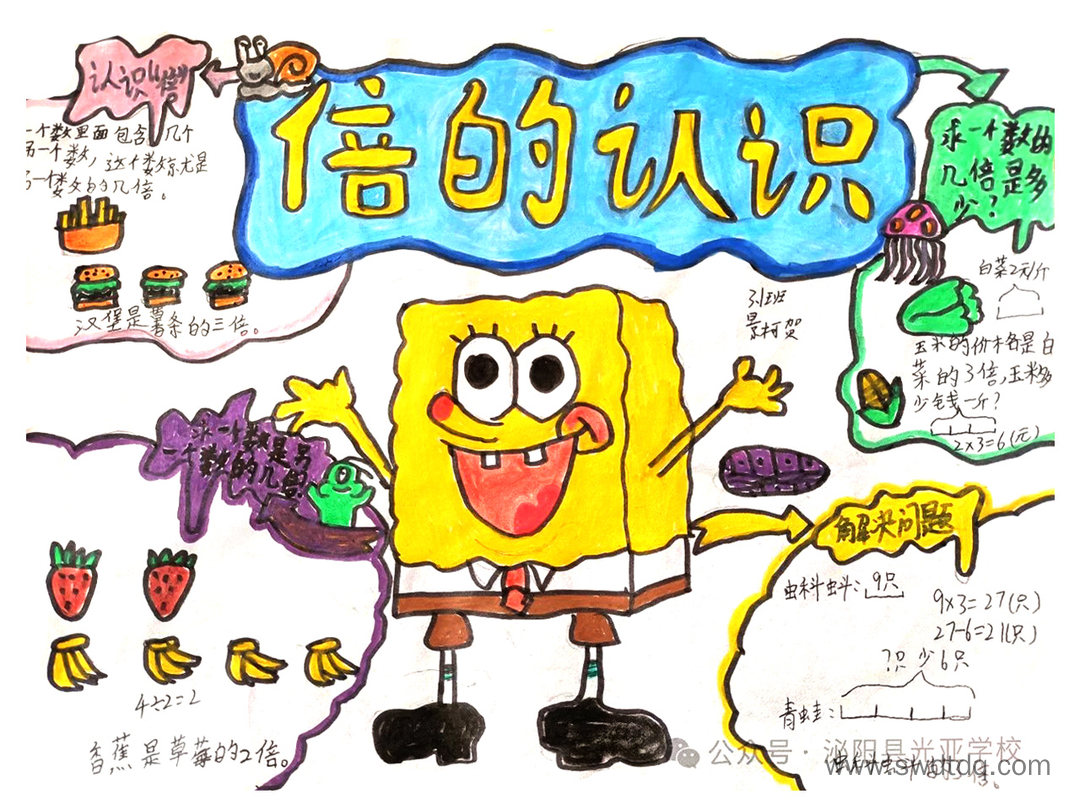 倍的认识
认识“倍”
一个数里面包含几个
另一个数，这个数就是
另一个数的几倍。
汉堡是薯条的三倍。
求一个数的
几倍是多
少？
白菜2元/斤
玉米的价格是白
菜的3倍，玉米多
少钱一斤？
2×3=6(元)
31班
景柯贺
求一个数是另
一个数的几倍
4÷2=2
香蕉是草莓的2倍。
解决问题
虫科虫斗：9只
9×3=27(只)
27-6=21(只)
?只 少6只
青蛙：
公众号·泌阳县光亚学校
www.swdtdq.com